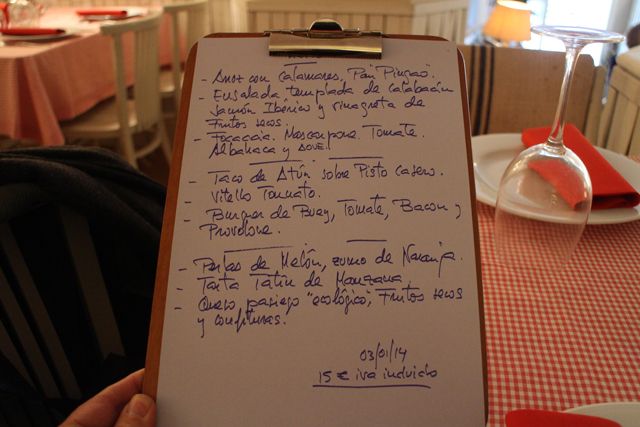 - Arroz con Calamares, "Pan Pintao".
- Ensalada templada de calabacín
Jamón Ibérico y vinagreta de
Frutos secos.
- Focaccia. Mascarpone. Tomate.
Albahaca y AOVE.
- Taco de Atún sobre Pisto Casero.
- Vitello Tonnato.
- Burger de Buey, Tomate, Bacon y
Provolone.
- Perlas de Melón, zumo de Naranja.
- Tarta Tatin de Manzana.
- Queso pasiego "ecológico", Frutos secos
y confituras.
03/01/14
15 € iva incluido